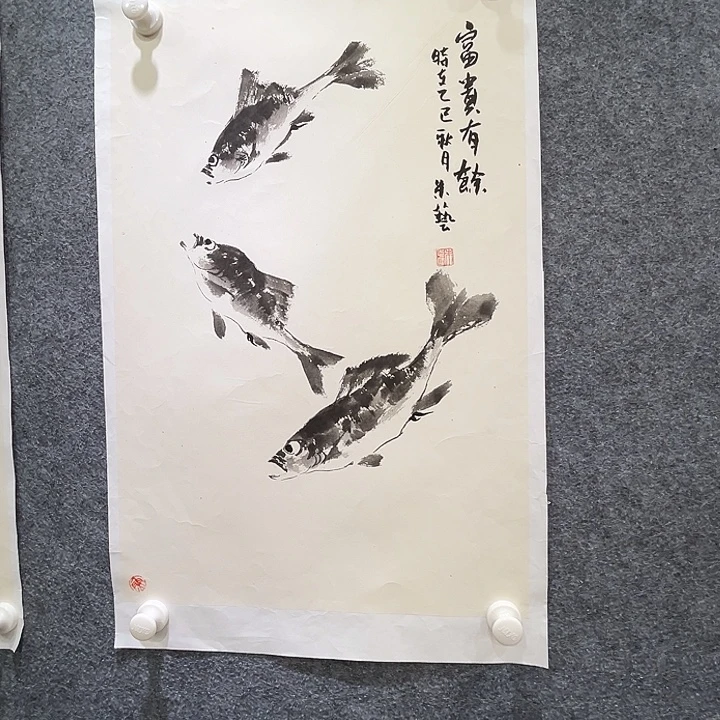 富貴有餘
時在乙巳秋月朱藝